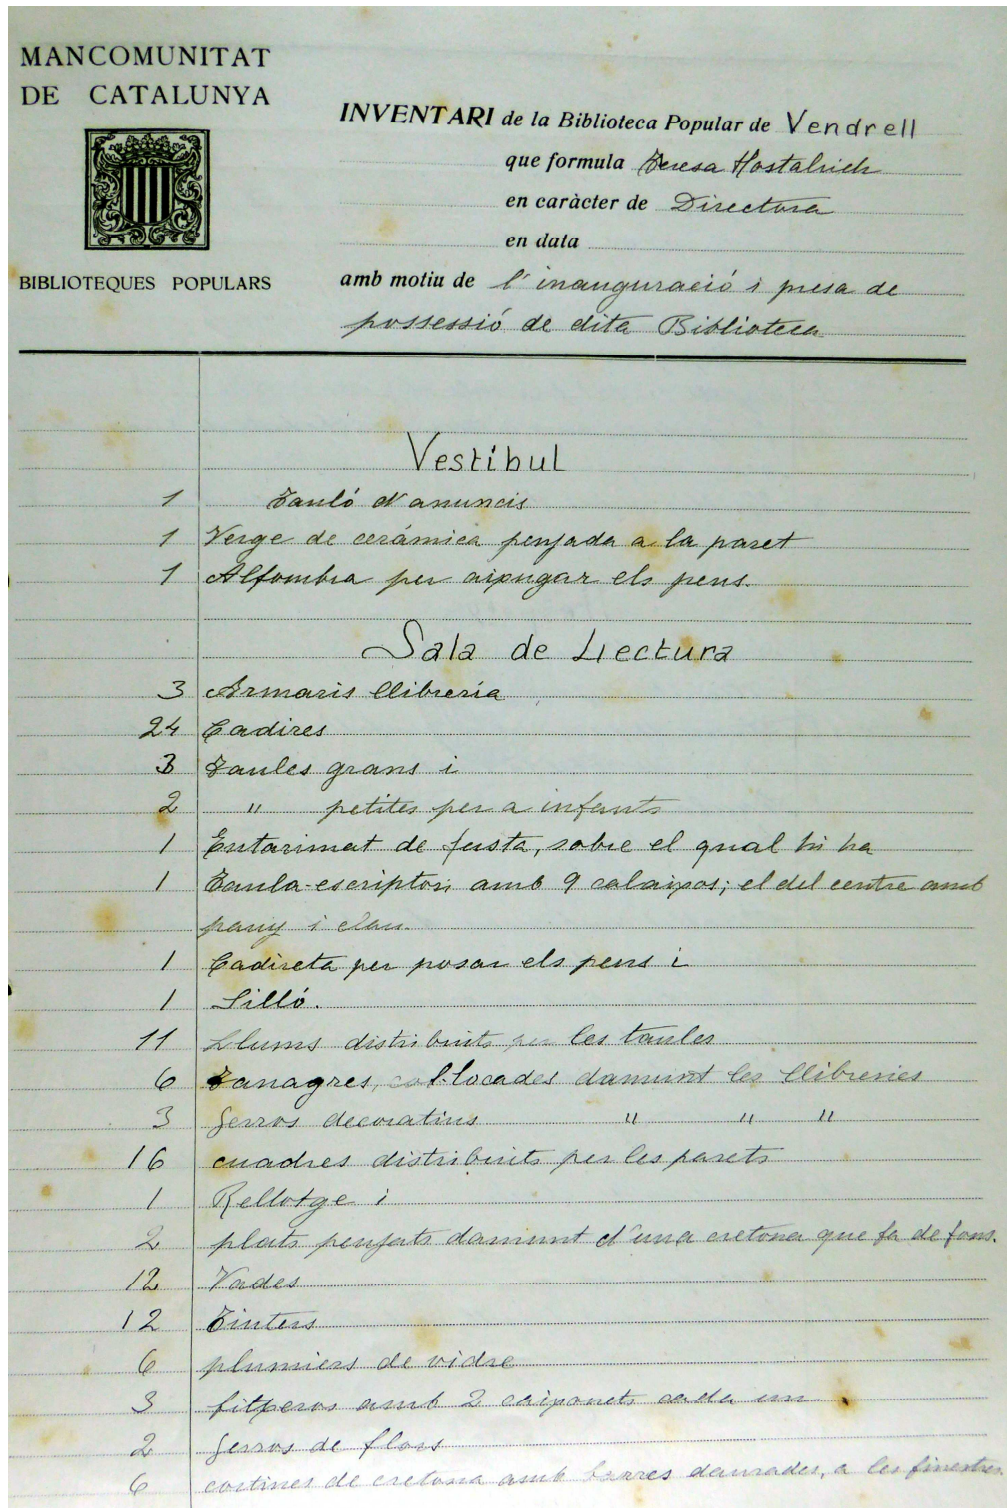 MANCOMUNITAT
DE CATALUNYA
BIBLIOTEQUES POPULARS
INVENTARI de la Biblioteca Popular de Vendrell
que formula Teresa Hostalrich
en caràcter de Directora
en data
amb motiu de l'inauguració i presa de
possessió de dita Biblioteca
Vestíbul
1 Tauló d'anuncis
1 Verge de cerámica penjada a la paret
1 Alfombra per aixugar els peus.
Sala de Lectura
3 Armaris llibrería
24 Cadires
3 Taules grans i
2 " petites per a infants
1 Entarimat de fusta, sobre el qual hi ha
1 Taula-escriptori amb 9 calaixos; el del centre amb
pany i clau.
1 Cadireta per posar els peus i
1 Silló.
11 Llums distribuits per les taules
6 Tanagres, col·locades damunt les llibreries
3 Gerros decoratius " " "
16 cuadres distribuits per les parets
1 Rellotge i
2 plats penjats damunt d'una cretona que fa de fons.
12 Vades
12 Tinters
6 plumiers de vidre
3 fitxeros amb 2 caixonets cada un
2 Gerros de flors
6 cortines de cretona amb barres daurades, a les finestres